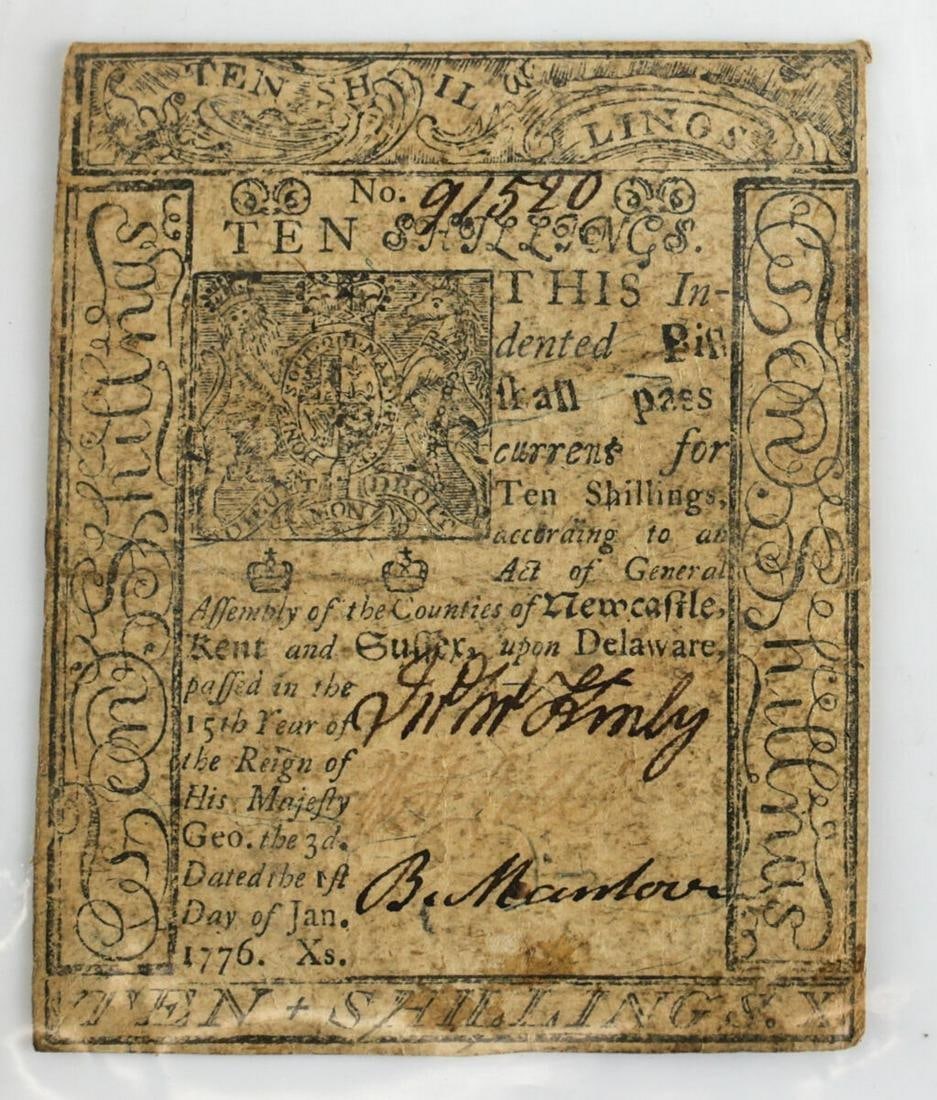 TEN SHILLINGS
No. 91520
TEN SHILLINGS.
THIS In-
dented Bill
shall pass
current for
Ten Shillings,
according to an
Act of General
Assembly of the Counties of Newcastle,
Kent and Sussex, upon Delaware,
passed in the
15th Year of
the Reign of
His Majesty
Geo. the 3d.
Dated the 1st
Day of Jan.
1776. Xs.
HONI SOIT QUI MAL Y PENSE
DIEU ET MON DROIT
B. Manlove
Ten Shillings
Ten Shillings
TEN + SHILLINGS. X